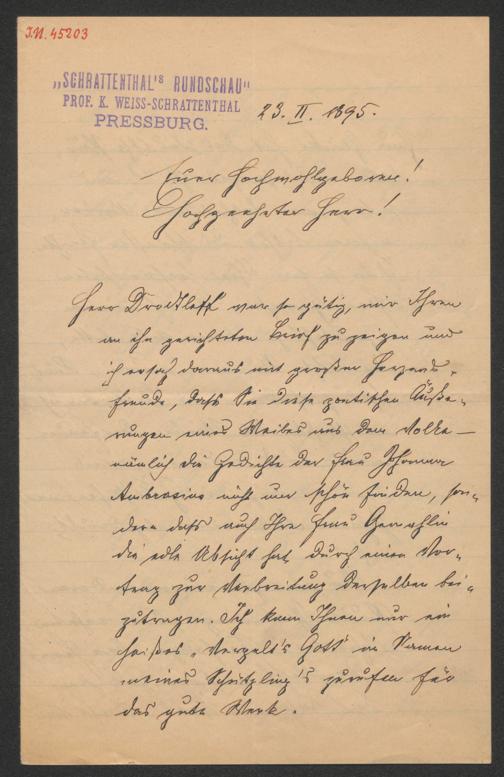 J.N. 45203
„SCHRATTENTHAL's RUNDSCHAU"
PROF. K. WEISS-SCHRATTENTHAL
PRESSBURG.
23. II. 1895.
Euer Hochwohlgeboren!
Hochgeehrter Herr!
Herr Drodtleff war so gütig, mir Ihren
an ihn gerichteten Brief zu zeigen und
ich ersah daraus mit großer Herzens-
freude, dass Sie diese poetischen Äuße-
rungen eines Weibes aus dem Volke –
nämlich die Gedichte der Frau Johanna
Ambrosius nicht nur schön finden, son-
dern dass auch Ihre Frau Gemahlin
die edle Absicht hat, durch einen Vor-
trag zur Verbreitung derselben bei-
zutragen. Ich kann Ihnen nur ein
heißes „Vergelt's Gott" im Namen
meines Schützling's zurufen für
das gute Werk.